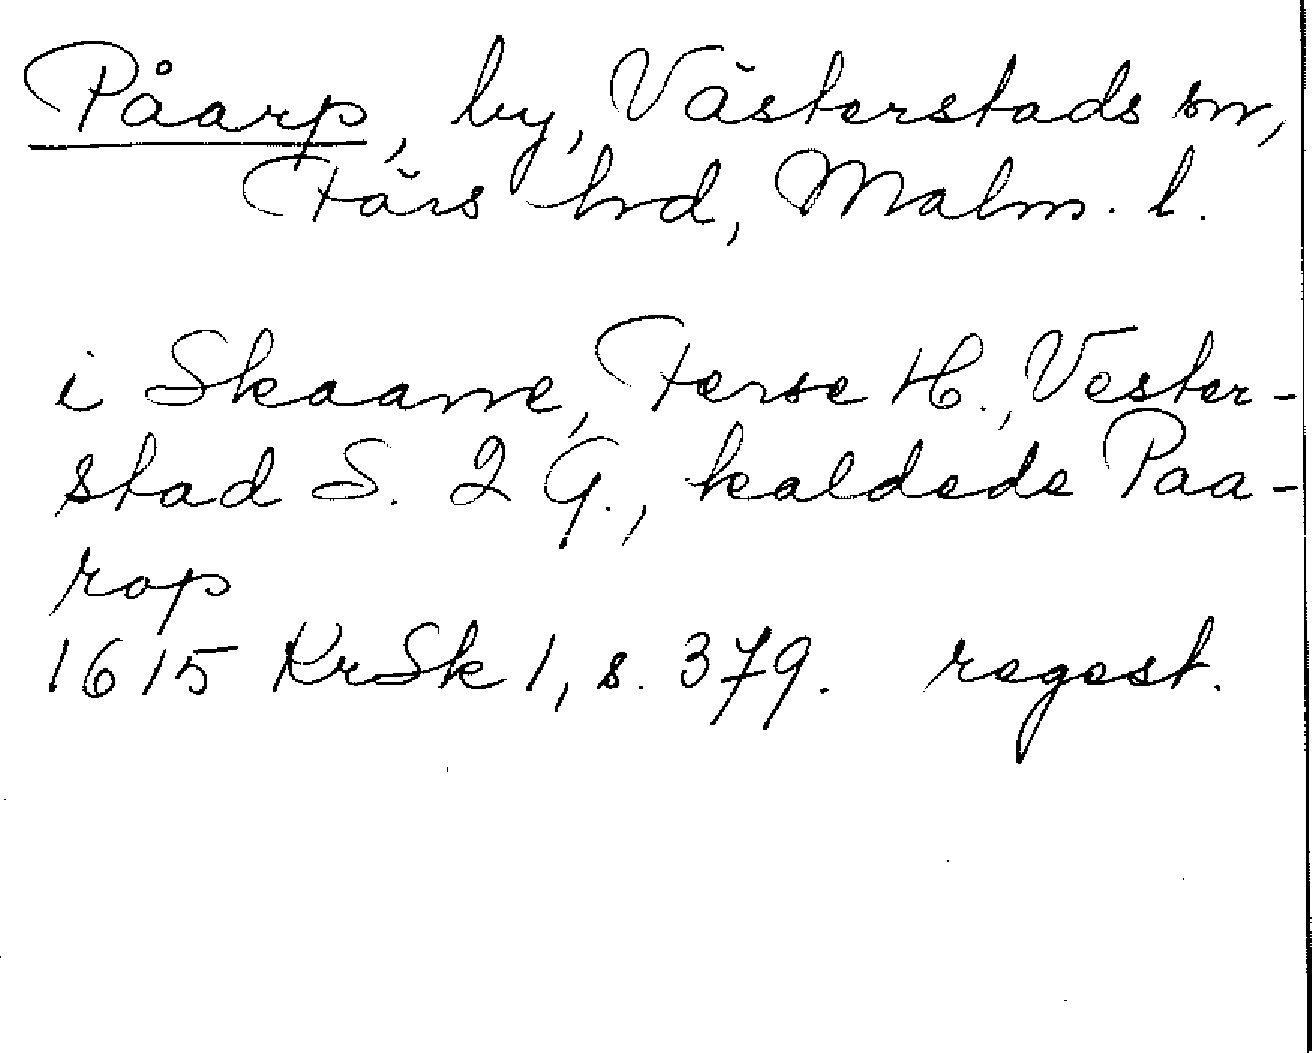 Påarp, by, Västerstads sn,
Färs hrd, Malm. l.
i Skaane, Ferse H., Vester-
stad S. 2 G., kaldede Paa-
rop
1615 KrSk 1, s. 379. regest.